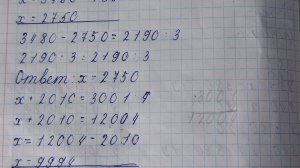 x = 2750
3480 - 2750 = 2190 : 3
2190 : 3 = 2190 : 3
Ответ: x = 2750
x + 2010 = 3001 · 4
x + 2010 = 12004
x = 12004 - 2010
x = 9994